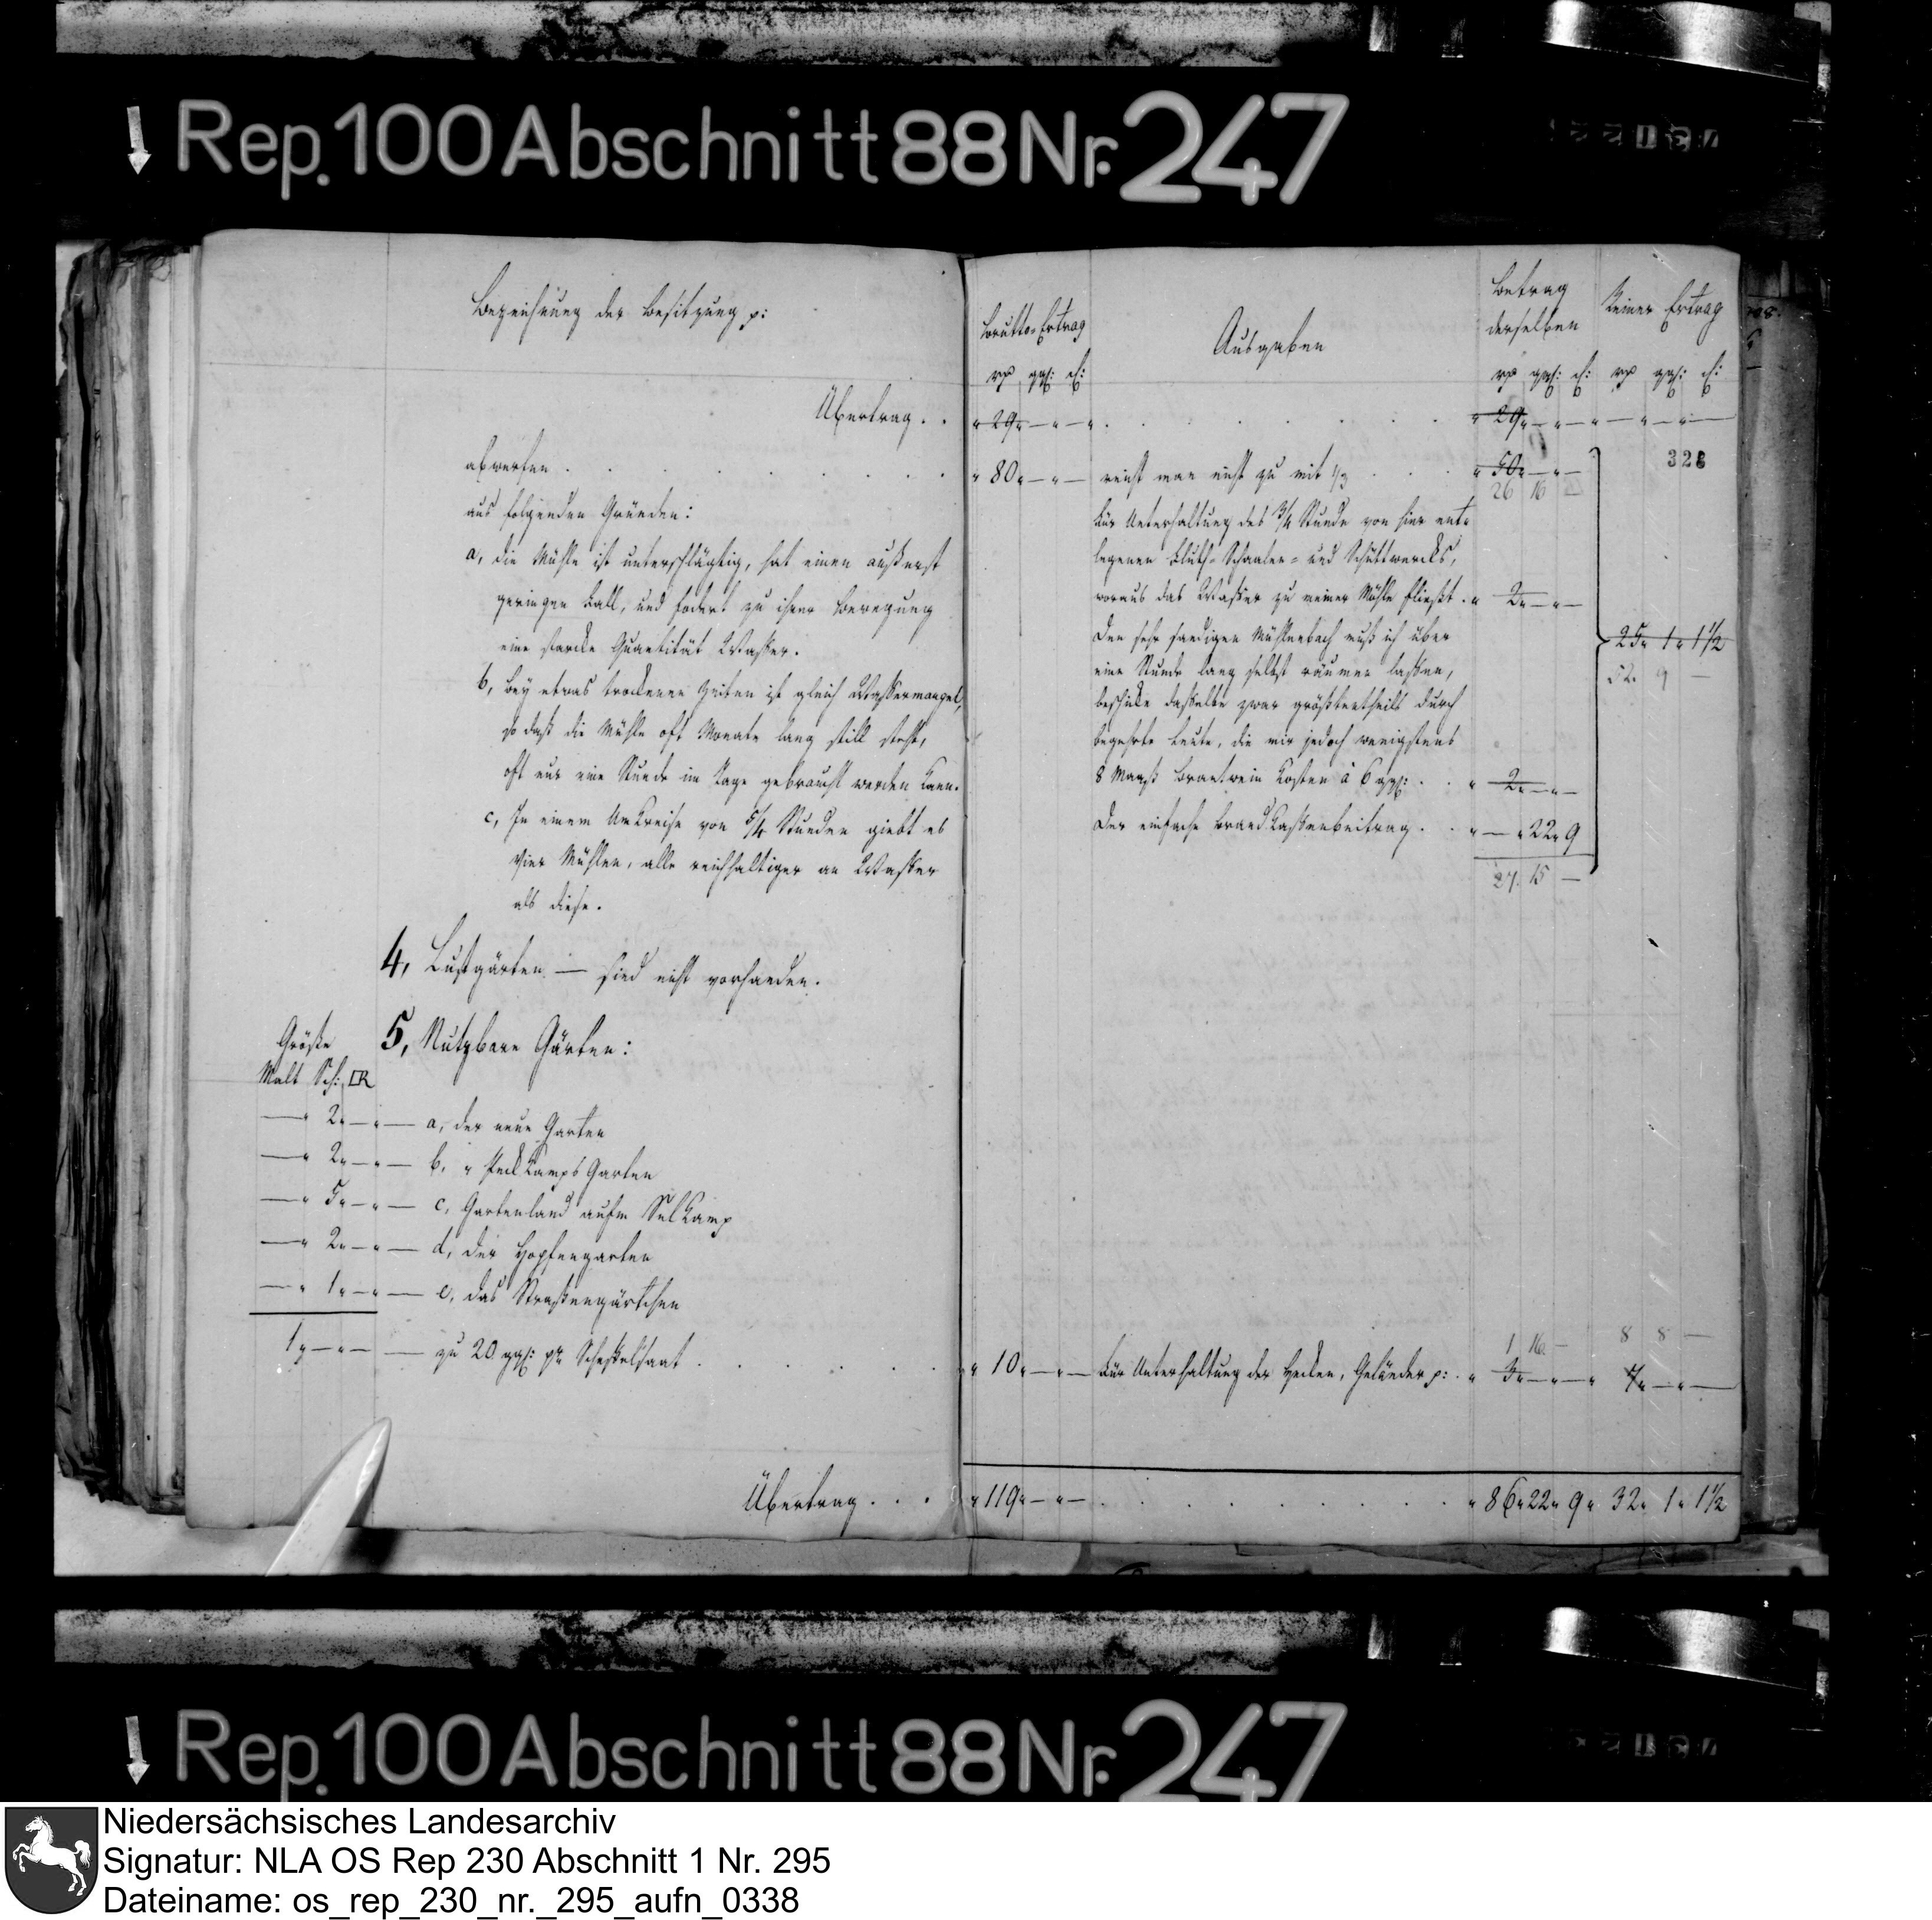 Rep. 100 Abschnitt 88 Nr. 247
Bezeichnung der Besitzung p:
Übertrag . .
abwerfen . . . . . . . . .
aus folgenden Gründen:
a, die Mühle ist unterschlägtig, hat einen äußerst
geringen Fall, und fodert zu ihrer Bewegung
eine starcke Quantität Wasser.
b, Bey etwas trockenen Zeiten ist gleich Wassermangel,
so daß die Mühle oft Monate lang still steht,
oft nur eine Stunde im Tage gebraucht werden kann.
c, In einem Umkreise von 5/4 Stunden giebt es
vier Mühlen, alle reichhaltiger an Wasser
als diese.
4, Lustgärten — sind nicht vorhanden.
5, Nutzbare Gärten:
Größe
Malt Sch: □R
— " 2 " — " — a, der neue Garten
— " 2 " — " — b, " Kamps Garten
— " 5 " — " — c, Gartenland aufm Kamp
— " 2 " — " — d, der Hopfengarten
— " 1 " — " — e, das Straßengärtchen
1 " — " — — zu 20 ggl: pr Scheffelsaat . . . . . .
Übertrag . . .
Brutto-Ertrag
rx ggl: d:
Ausgaben
Betrag
derselben
rx ggl: d:
Reiner Ertrag
rx ggl: d:
" 29 " — " — " . . . . . . " 29 " — " — " — " — " —
328
" 80 " — " — reicht man nicht zu mit 1/3 . . . " 50 " — " —
26 16 —
Für Unterhaltung des 3/4 Stunde von hier ent-
legenen Fluth- Schaalen- und Schüttwercks,
woraus das Wasser zu meiner Mühle fließt . " 2 " — " —
Den sehr sandigen Mühlenbach muß ich über
eine Stunde lang selbst räumen lassen,
25 " 1 " 1 1/2
52 9 —
beschicke dasselbe zwar größtentheils durch
begehrte Leute, die mir jedoch wenigstens
8 Maaß Brantwein kosten à 6 ggl: . . " 2 " — " —
Der einfache Brand Kassenbeitrag . . " — " 22 " 9
27 15 —
1 16 — 8 8 —
" 10 " — " — Für Unterhaltung der Hecken, Geländer p: . " 3 " — " — " 7 " — " —
" 119 " — " — . . . . . . . . . " 86 " 22 " 9 " 32 " 1 " 1 1/2
Rep. 100 Abschnitt 88 Nr. 247
Niedersächsisches Landesarchiv
Signatur: NLA OS Rep 230 Abschnitt 1 Nr. 295
Dateiname: os_rep_230_nr._295_aufn_0338